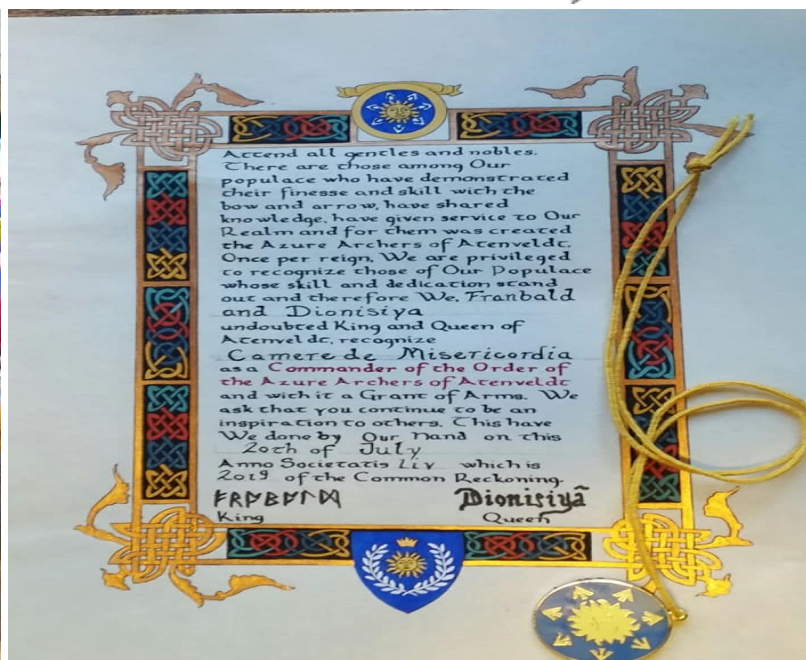 Attend all gentles and nobles.
There are those among Our
populace who have demonstrated
their finesse and skill with the
bow and arrow, have shared
knowledge, have given service to Our
Realm and for them was created
the Azure Archers of Atenveldt.
Once per reign, We are privileged
to recognize those of Our Populace
whose skill and dedication stand
out and therefore We, Franbald
and Dionisiya
undoubted King and Queen of
Atenveldt, recognize
Camere de Misericordia
as a Commander of the Order of
the Azure Archers of Atenveldt
and with it a Grant of Arms. We
ask that you continue to be an
inspiration to others. This have
We done by Our Hand on this
20th of July
Anno Societatis Liv which is
2019 of the Common Reckoning.
Dionisiyã
King Queen